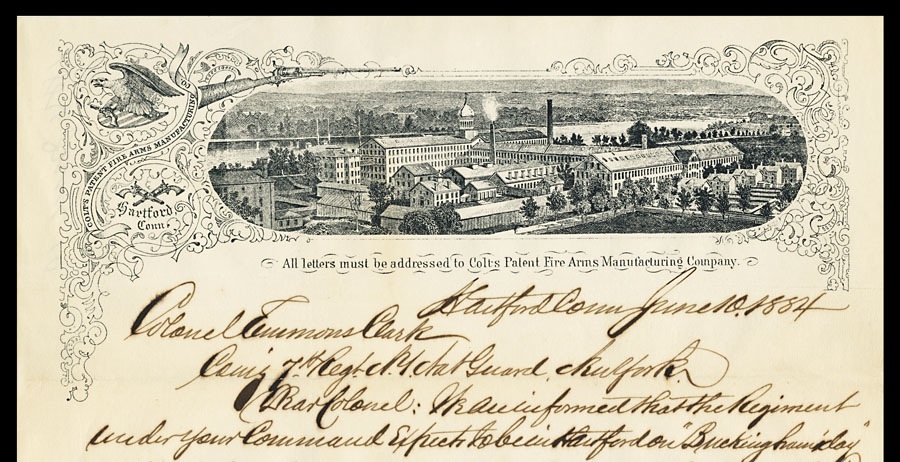 COLT'S PATENT FIRE ARMS MANUFACTURING CO
Hartford
Conn.
All letters must be addressed to Colts Patent Fire Arms Manufacturing Company.
Hartford Conn June 10, 1884
Colonel Emmons Clark
Com'g 7th Regt N.Y. Nat Guard,
Dear Colonel: We are informed that the Regiment
under your Command Expect to be in Hartford on "Buckingham day"